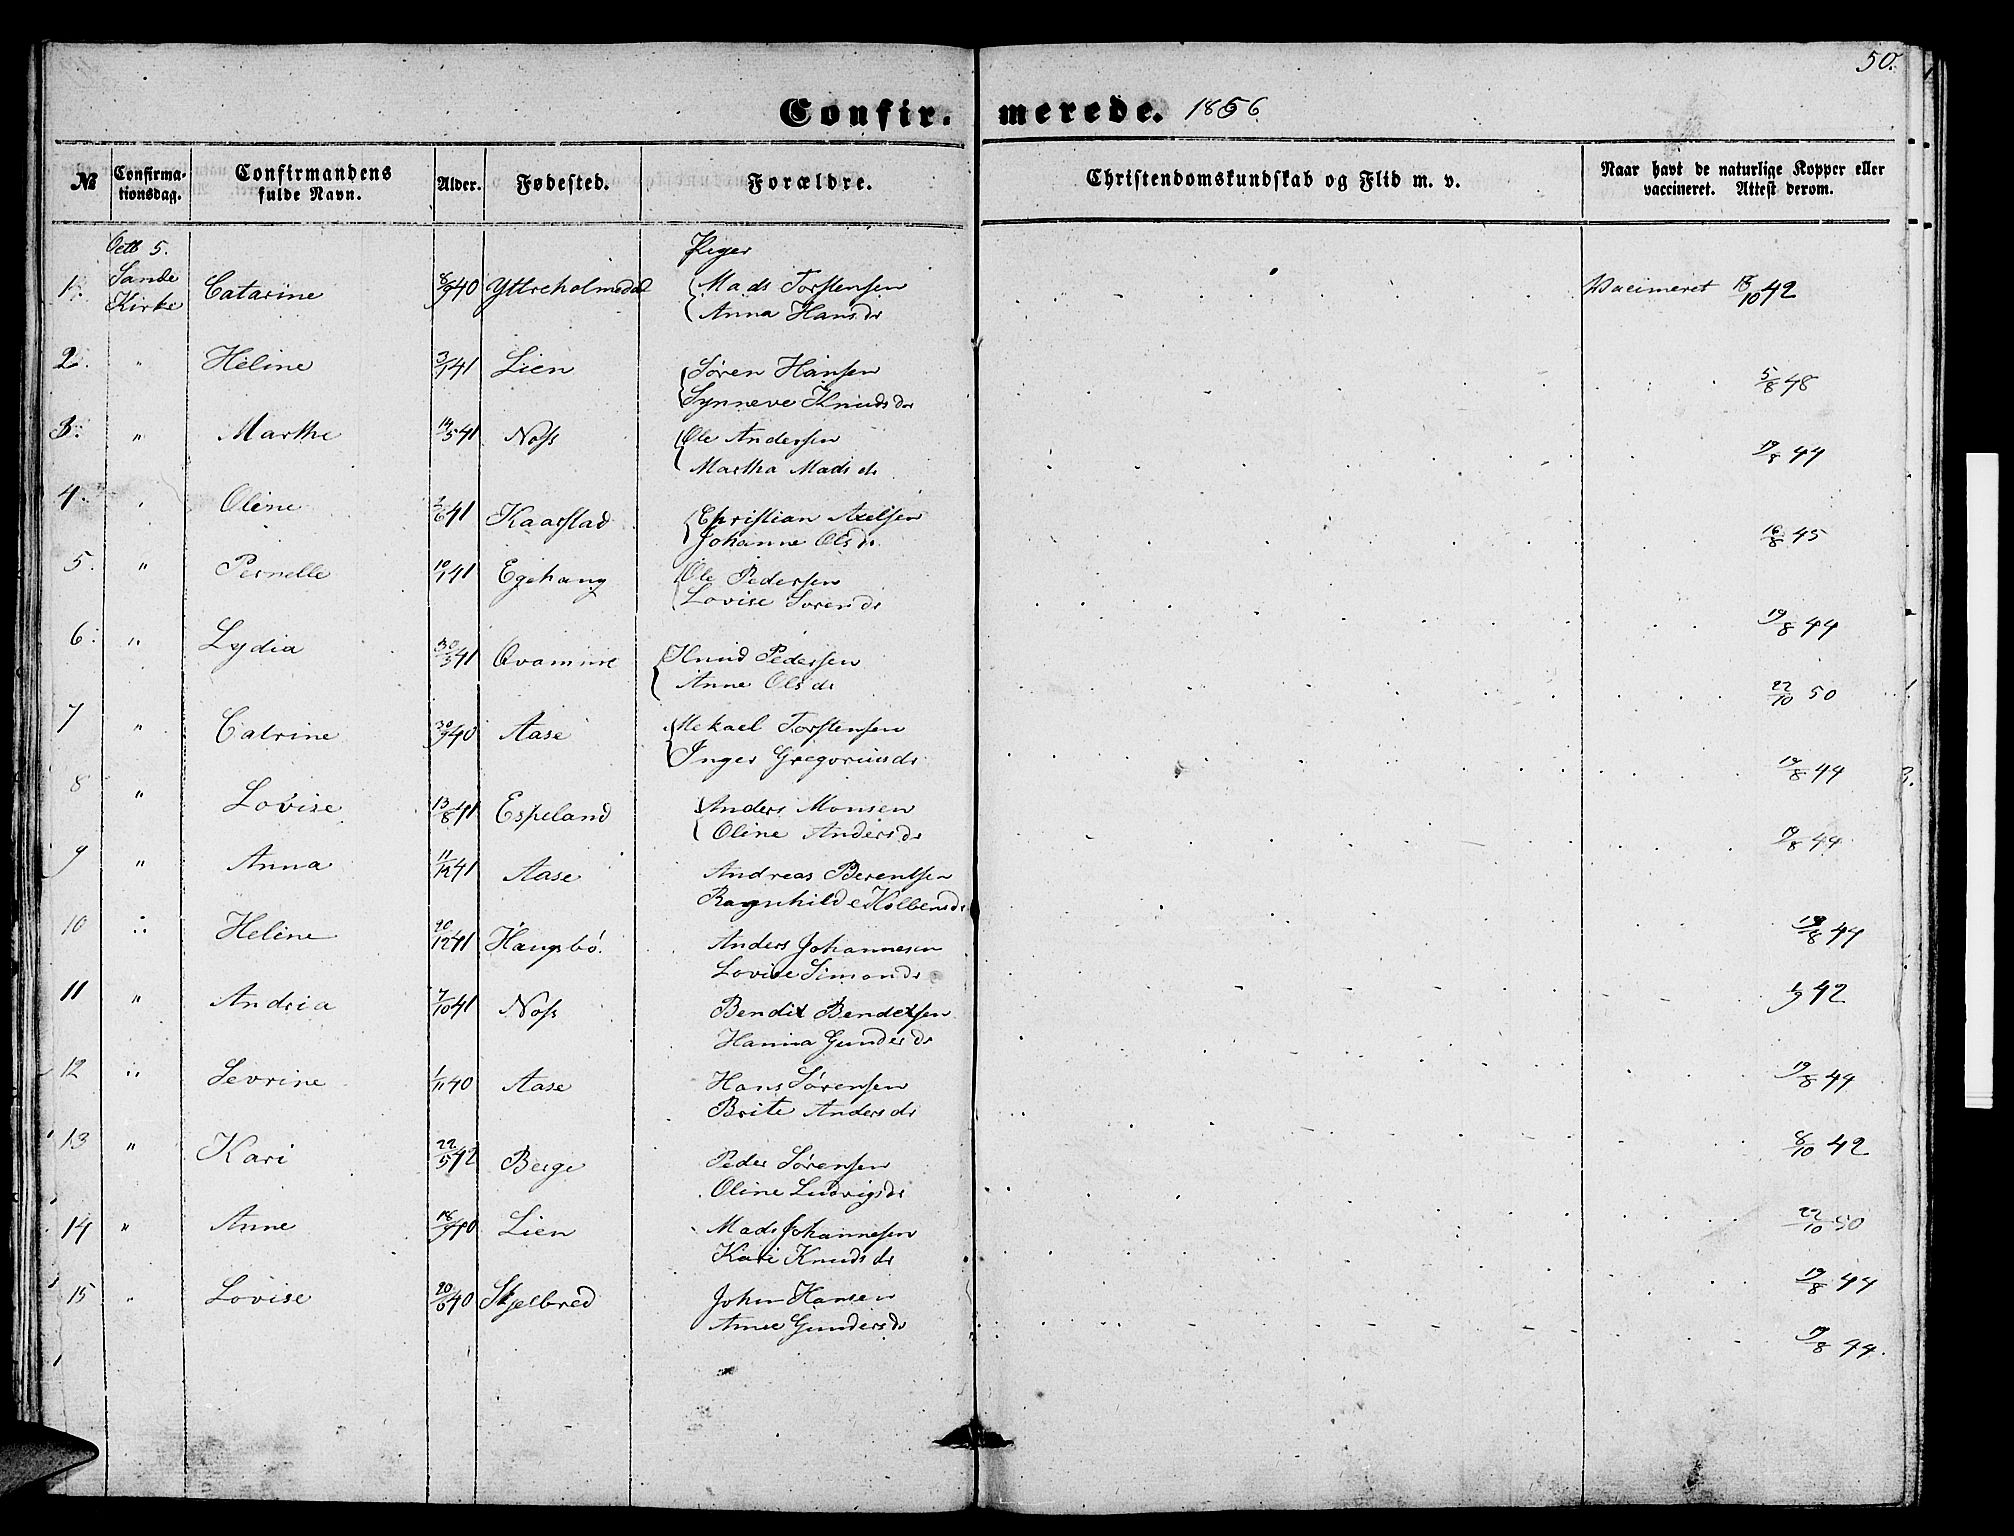 50.
Confir. merede. 1856
№ Confirma-tionsdag. Confirmandens fulde Navn. Alder. Fødested. Forældre. Christendomskundskab og Flid m. v. Naar havt de naturlige Kopper eller vaccineret. Attest derom.
Octb 5. Piger
1. Sande Kirke Catarine 8/9 40 Yttreholmedal Mads Torstensen Vaccineret 13/10 42
Anna Hansdr
2. " Heline 3/1 41 Lien Søren Hansen 5/8 48
Synneve Knudsdr
3. " Marthe 14/5 41 Noss Ole Andersen 19/8 44
Martha Madsdr
4. " Oline 41 Kaarstad Christian Axelsen 16/8 45
Johanne Olsdr
5. " Pernelle 10/1 41 Egehaug Ole Pedersen 19/8 44
Lovise Sorensdr
6. " Lydia 30/3 41 Qvamme Knud Pedersen 22/10 50
Anne Olsdr
7 " Catrine 30/9 40 Aase Mekael Torstensen 19/8 44
Inger Gregoriusdr
8 " Lovise 13/8 41 Espeland Anders Monsen 19/8 44
Oline Andersdr
9 " Anna 11/12 41 Aase Andreas Berentsen
Ragnhilde Kolbensdr
10 " Heline 20/12 41 Haugsbø. Anders Johannesen 19/8 44
Lovise Simonsdr
11 " Andria 7/10 41 Noss Bendix Bendixsen 42
Hanna Gundersdr
12 " Sevrine 1/11 40 Aase Hans Sørensen 19/8 44
Brite Andersdr
13 " Kari 22/5 42 Berge Peder Sørensen 8/10 42
Oline Ludvigsdr
14 " Anne 18/9 40 Lien Mads Johannesen 22/10 50
Kari Knudsdr
15 " Lovise 20/6 40 Skjelbred John Hansen 19/8 44
Anne Gundersdr
19/8 44.